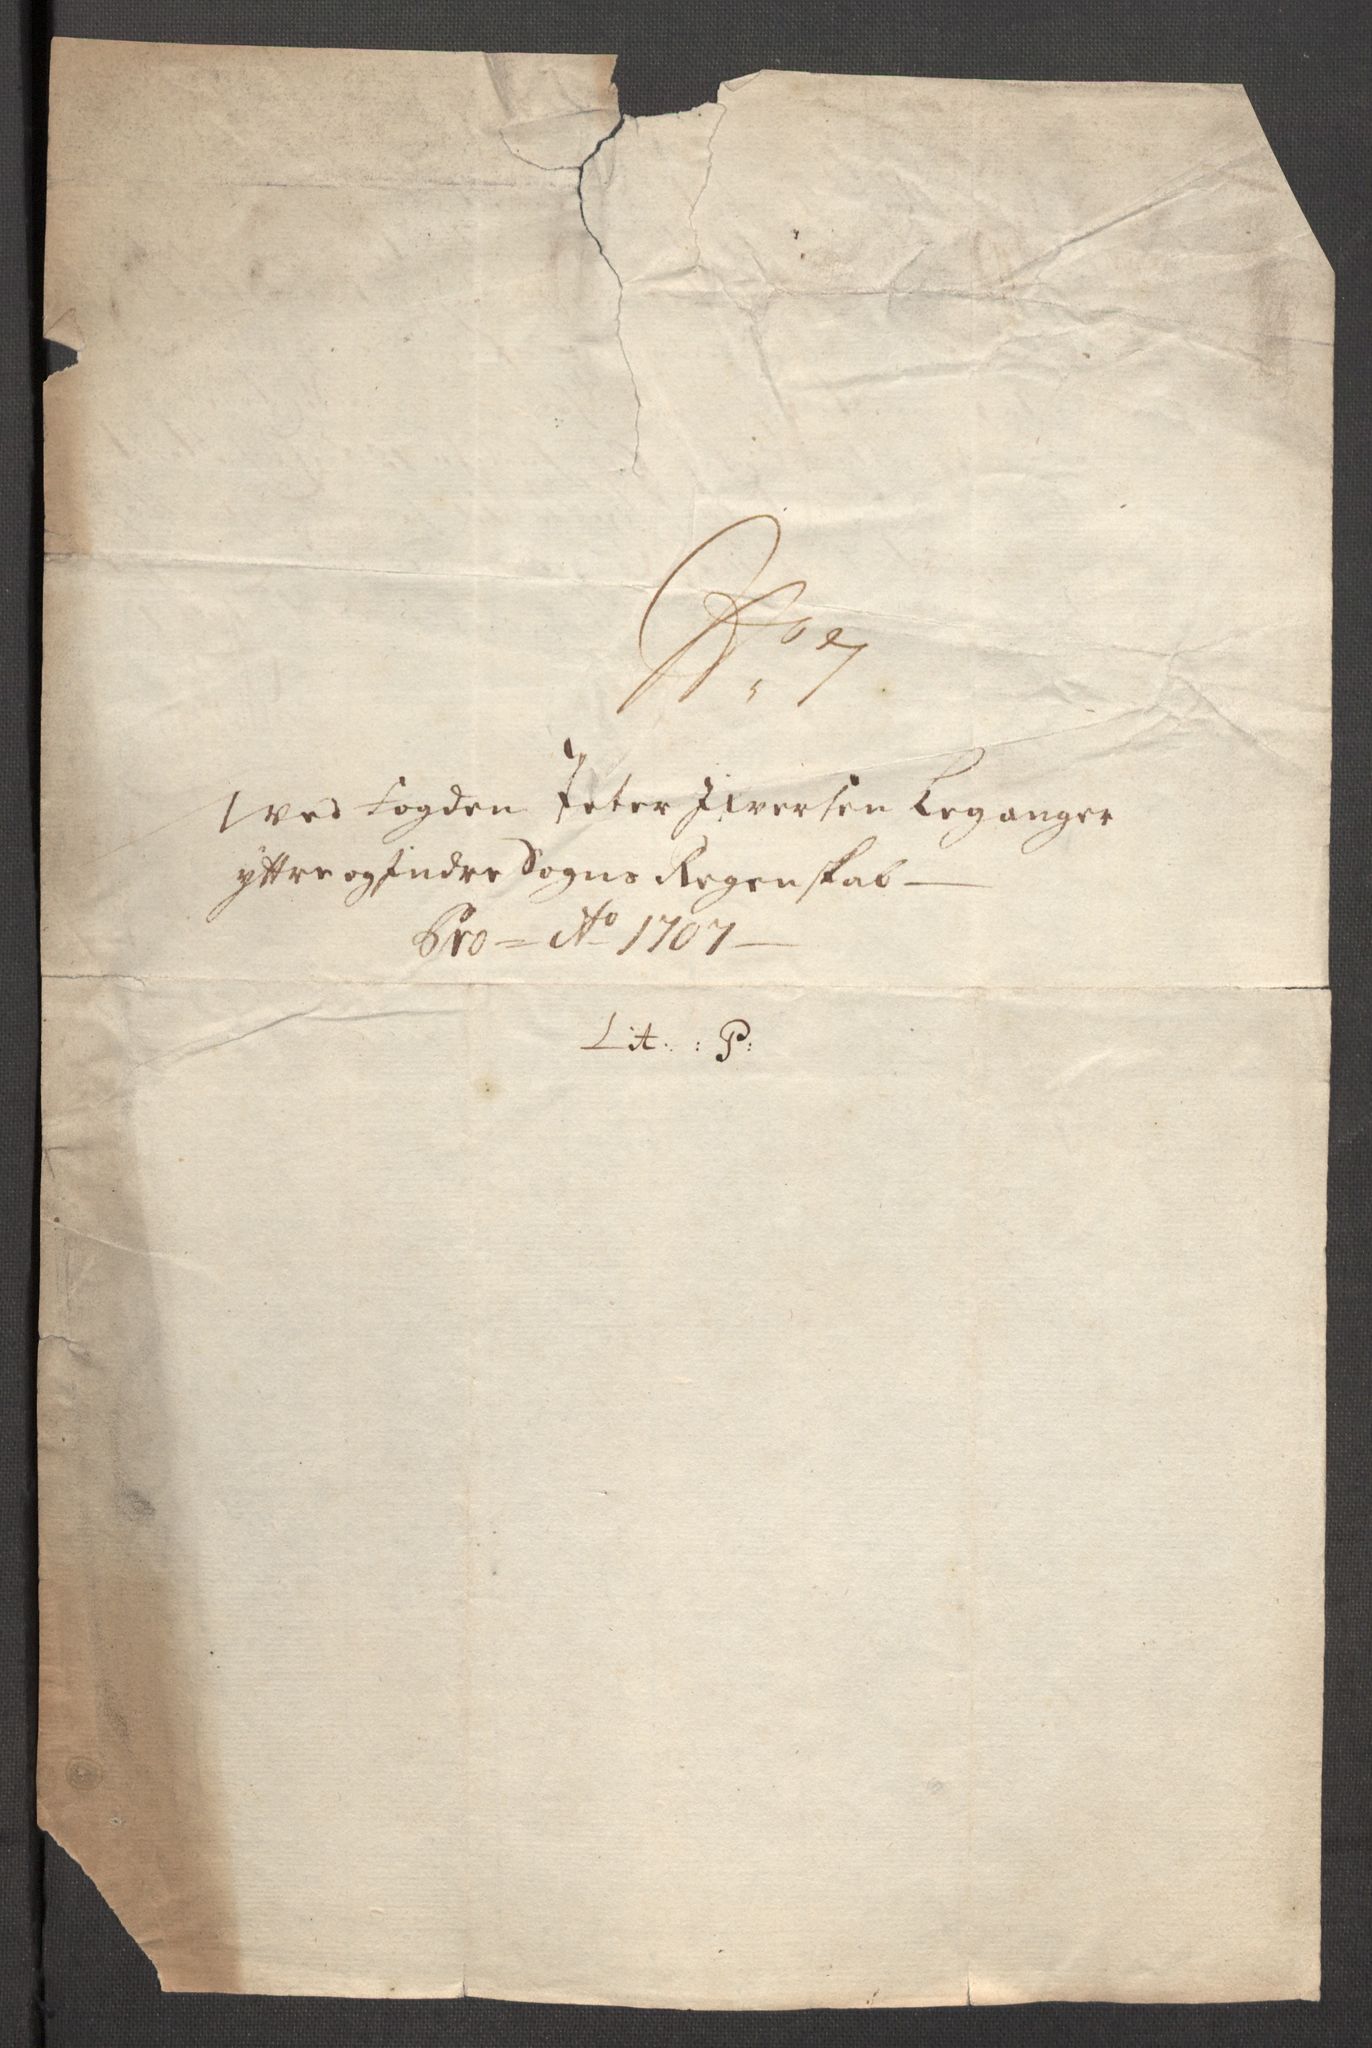 No 27
Wed Fogden Peter Iversen Leganger
yttre og Indre Sogns Regenskab —
Pro = Ao 1707 —
Lit: : P: